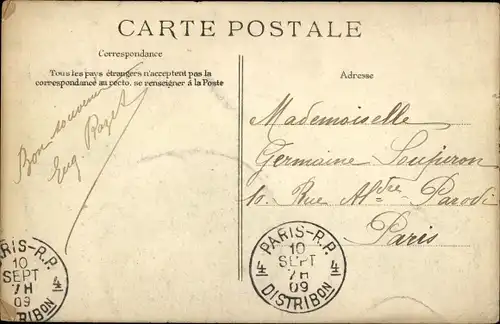 CARTE POSTALE
Correspondance
Tous les pays étrangers n'acceptent pas la
correspondance au recto, se renseigner à la Poste
Adresse
Bon souvenir
Eug.
Mademoiselle
Germaine
10. Rue Aldre Parodi
Paris
PARIS-R.P.
10
SEPT
7H
09
DISTRIBON
PARIS-R.P.
10
SEPT
7H
09
DISTRIBON